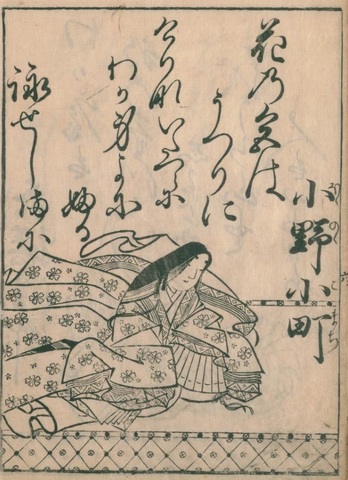 小野小町
花の色は
うつりに
けりないたつらに
わか身よに
ふる
詠せしまに